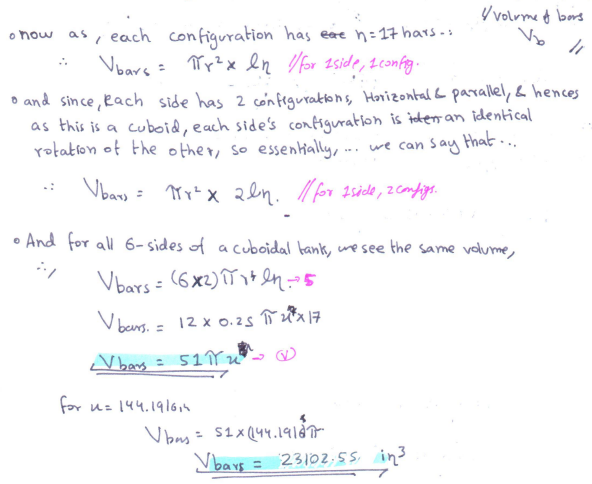 // volume of bars
V_b //
• now as, each configuration has n=17 bars ..
∴ V_bars = πr² × ln // for 1side, 1config.
• and since, Each side has 2 configurations, Horizontal & parallel, & hences
as this is a cuboid, each side's configuration is an identical
rotation of the other, so essentially, ... we can say that ...
∴ V_bars = πr² × 2ln. // for 1side, 2configs.
• And for all 6-sides of a cuboidal tank, we see the same volume,
∴, V_bars = (6×2) πr² ln. → 5
V_bars. = 12 × 0.25 π x 17
V_bars = 51 π → (V)
for x = 144.1916in
V_bars = 51 × (144.1916) π
V_bars = 23102.55. in³